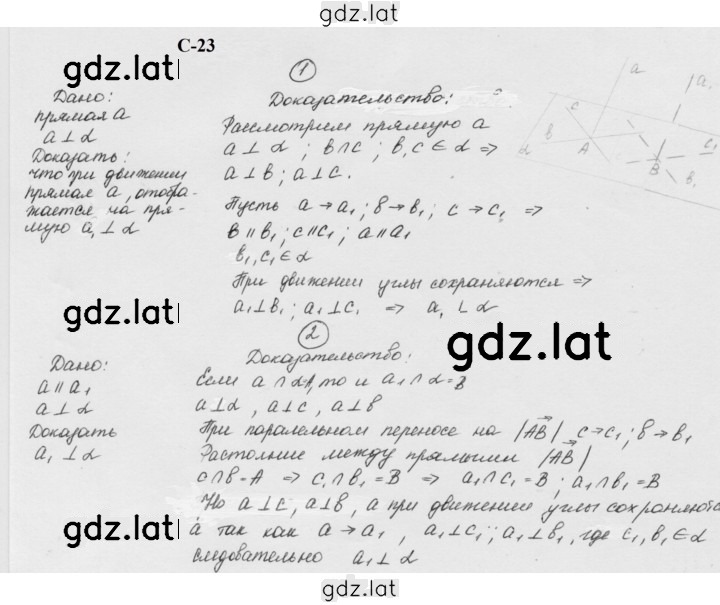 gdz.lat
С-23
gdz.lat
1
Дано:
прямая a
a ⊥ α
Доказать:
что при движении
прямая a, отобра-
жается на пря-
мую a₁ ⊥ α
Доказательство:
Рассмотрим прямую a
a ⊥ α ; b ∩ c ; b, c ∈ α ⇒
a ⊥ b ; a ⊥ c.
Пусть a → a₁ ; b → b₁ ; c → c₁ ⇒
b ∥ b₁ ; c ∥ c₁ ; a ∥ a₁
b₁, c₁ ∈ α
При движении углы сохраняются ⇒
a₁ ⊥ b₁ ; a₁ ⊥ c₁ ⇒ a₁ ⊥ α
a
a₁
c
b
α
A
B
c₁
b₁
gdz.lat
gdz.lat
2
Дано:
a ∥ a₁
a ⊥ α
Доказать
a₁ ⊥ α
Доказательство:
Если a ∩ α, то и a₁ ∩ α = B
a ⊥ α, a ⊥ c, a ⊥ b
При паралельном переносе на |AB| c → c₁ ; b → b₁
Растояние между прямыми |AB|
c ∩ b = A ⇒ c₁ ∩ b₁ = B ⇒ a₁ ∩ c₁ = B ; a₁ ∩ b₁ = B
Но a ⊥ c, a ⊥ b, а при движении углы сохраняютс
а так как a → a₁, a₁ ⊥ c₁ ; a₁ ⊥ b₁, где c₁, b₁ ∈ α
следовательно a₁ ⊥ α
gdz.lat
gdz.lat
gdz.lat